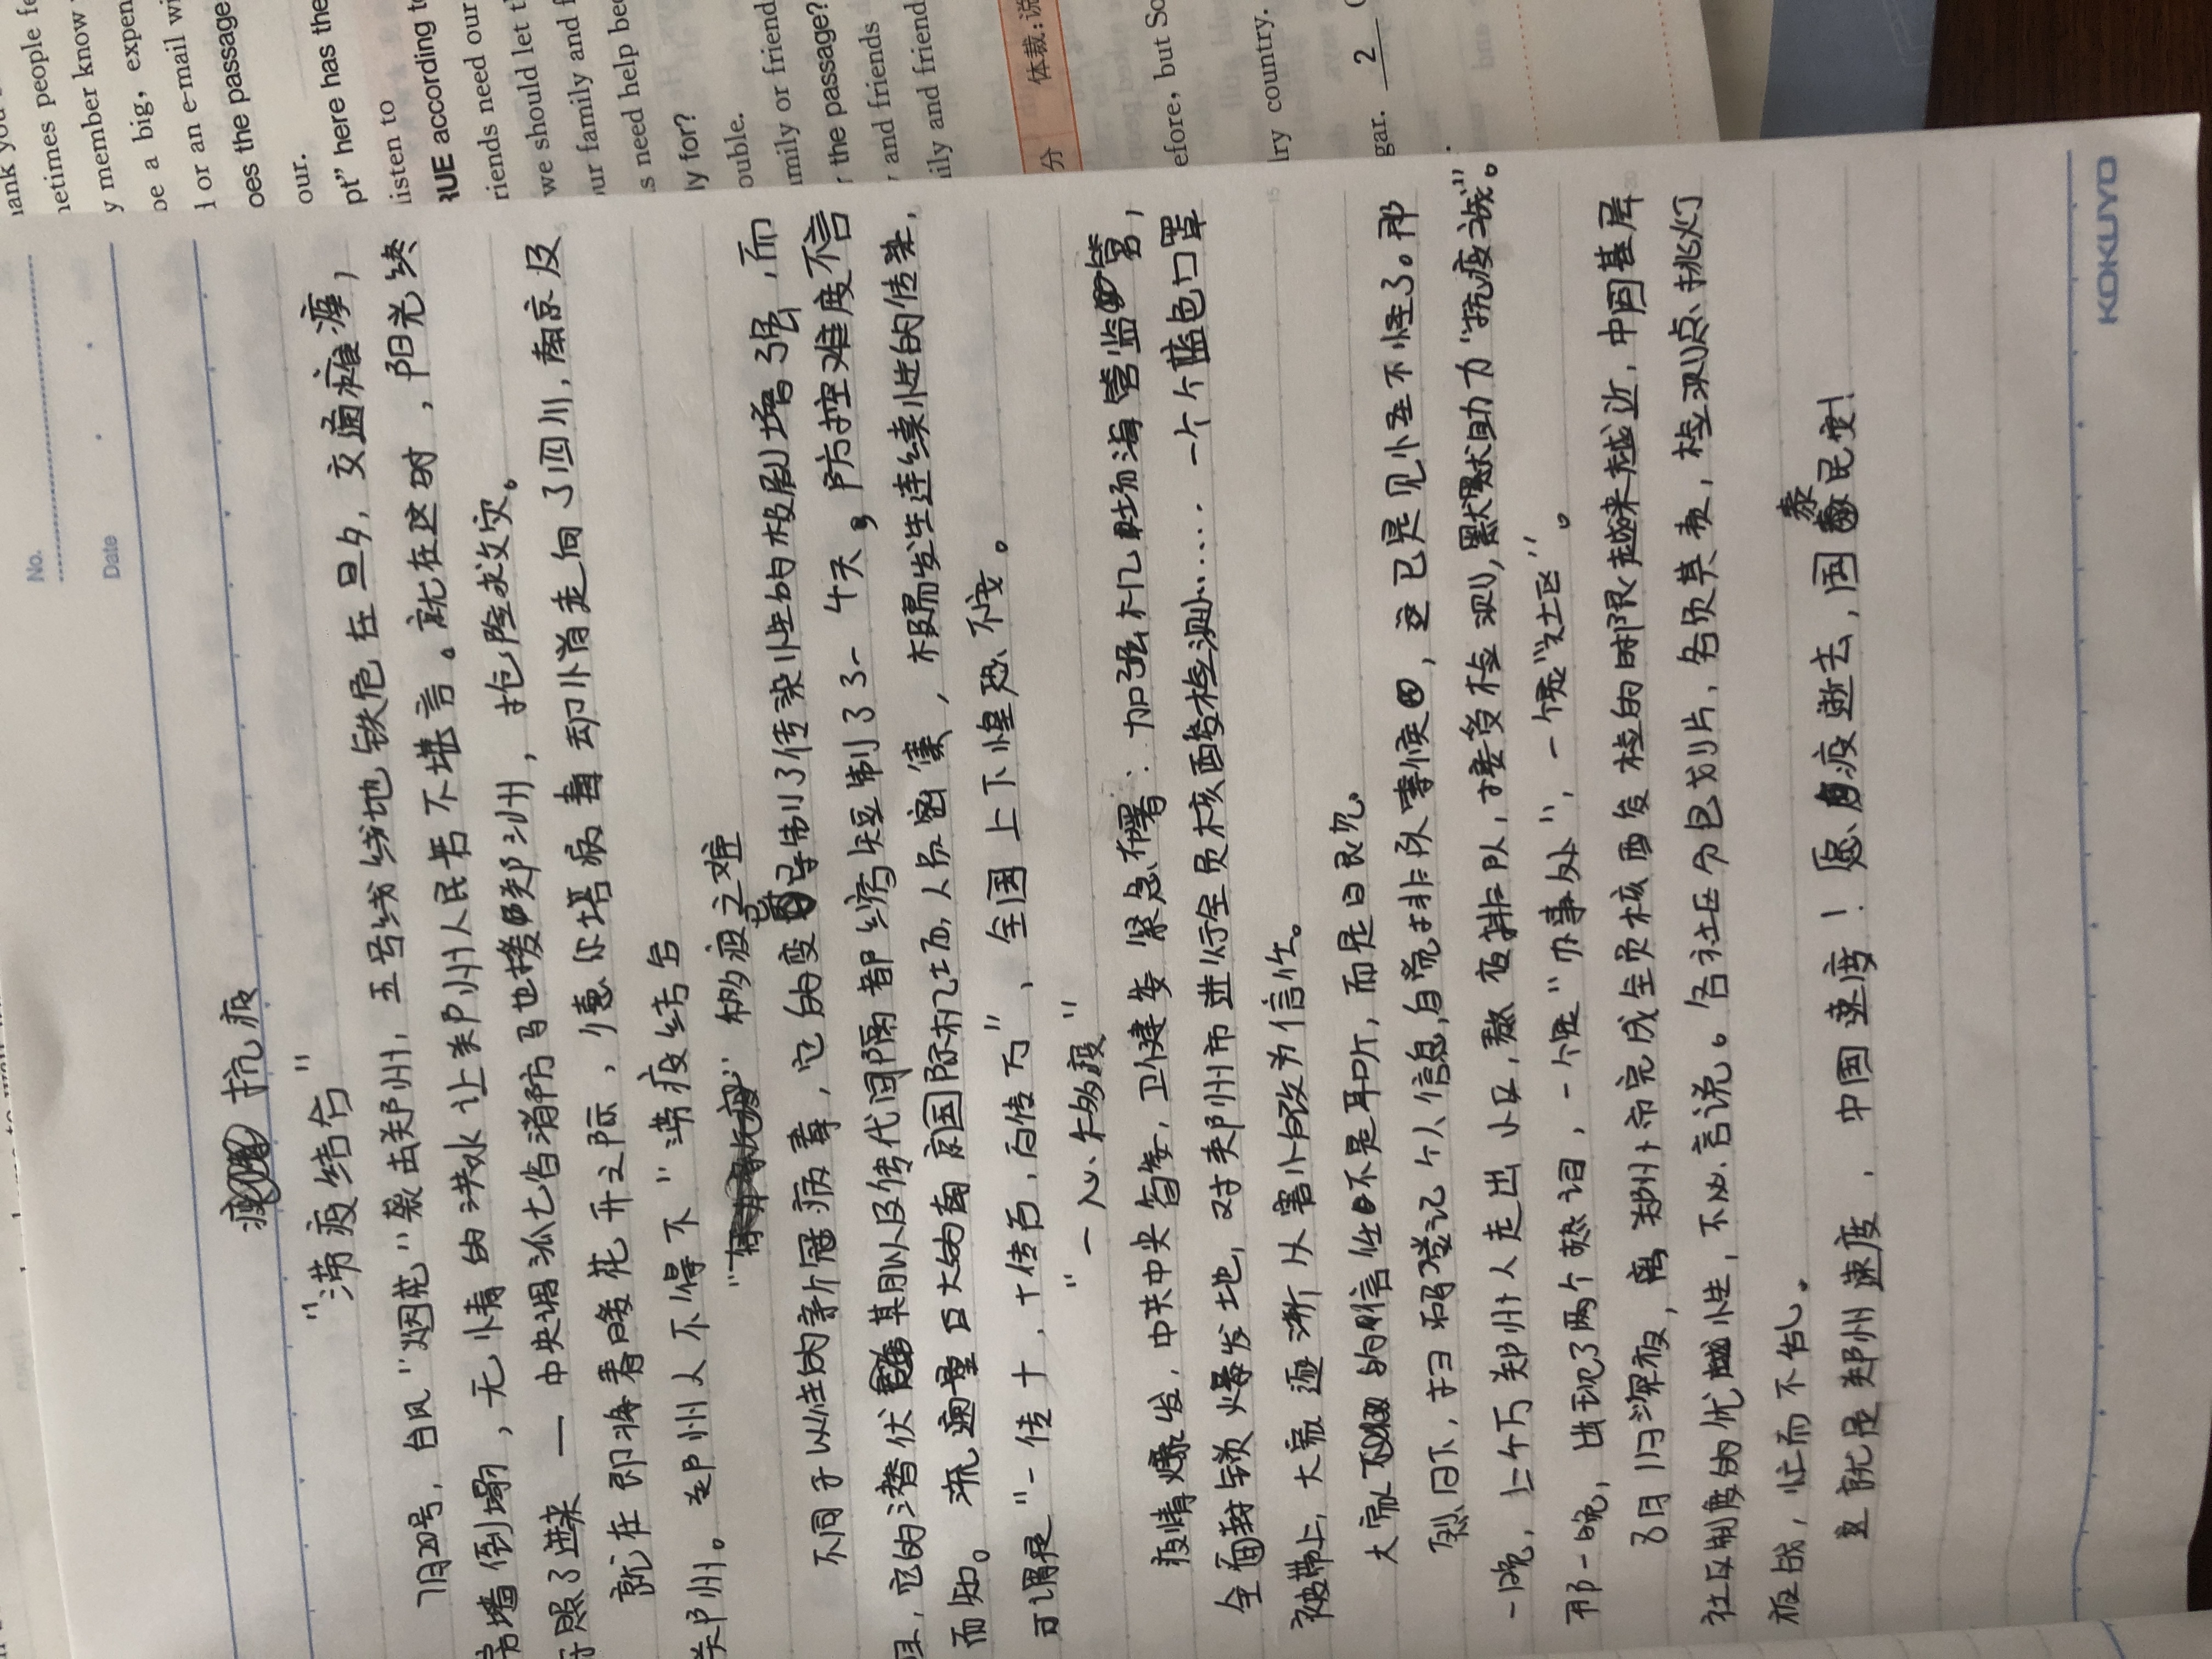 No.
Date
抗疫
"涝疫结合"
7月20号,台风"烟花"袭击郑州,五号线地铁危在旦夕,交通瘫痪,
房墙倒塌,无情的洪水让郑州人民苦不堪言。就在这时,阳光终
照了进来—中央调派七省消防马也援郑州,抢险救灾。
就在即将春暖花开之际,德尔塔病毒却悄悄走向了四川,南京及
郑州。郑州人不得不"涝疫结合
抗疫之难
不同于以往的新冠病毒,它的变导制了传染性的极剧增强,而
且,它的潜伏期以及传代间隔都缩短制了3-4天,防控难度不言
而知。流通量巨大的南京国际机场,人员密集,极易发生连续性的传染,
可谓是"一传十,十传百,百传万",全国上下惶恐不安。
"一心抗疫"
疫情爆发,中共中央省委,卫健委紧急布署:加强机场海管监管,
全面封锁爆发地,对郑州市进行全员核酸检测……一个个蓝色口罩
被带上,大家逐渐从害怕改为信任。
大家的信任不是耳听,而是目见。
烈日下,扫码登记个人信息,自觉排队等候,这已是见怪不怪了。那
一晚,上千万郑州人走出小区,熬夜排队,接受检测,默默助力"抗疫战"。
那一晚,出现了两个热词,一个是"办事处",一个是"社区"。
8月1日深夜,离郑州市完成全员核酸检的时限越来越近,中国基层
社区制度的优越性,不必言说。各社区分包划片,各负其责,检测点挑灯
夜战,忙而不乱。
这就是郑州速度,中国速度!愿疫逝去,国泰民安!
KOKUYO
ank you
metimes people fe
y member know
be a big, expen
l or an e-mail wi
oes the passage
our.
pt" here has the
listen to
RUE according to
riends need our
we should let t
ur family and f
s need help bec
ly for?
ouble.
amily or friend
the passage?
and friends
ily and friend
分 体裁:说
efore, but So
lry country.
gar. 2